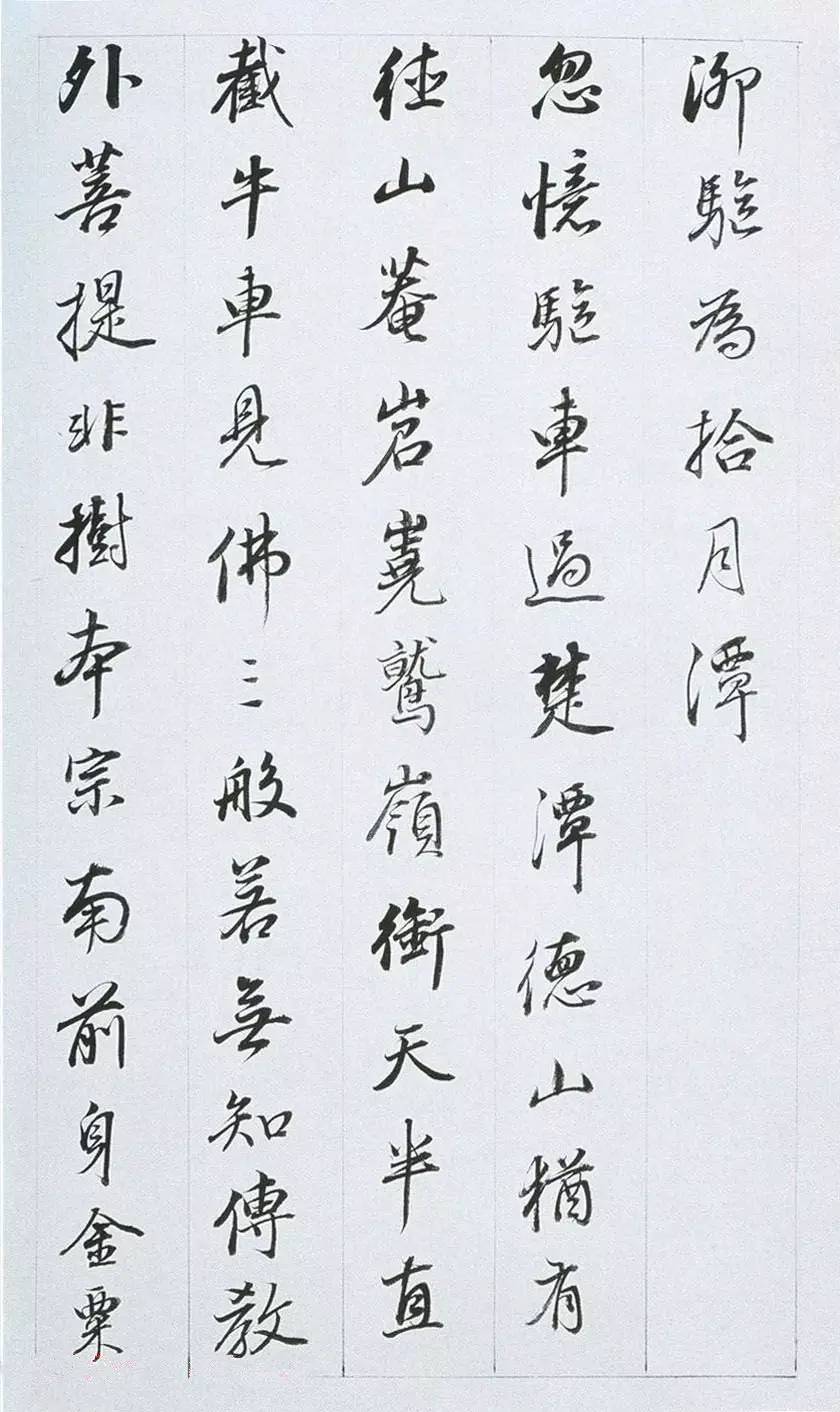 泖駞為拾月潭
忽憶駞車過楚潭德山猶有
住山菴岧嶤鷲嶺銜天半直
截牛車見佛三般若無知傳教
外菩提非樹本宗南前身金粟